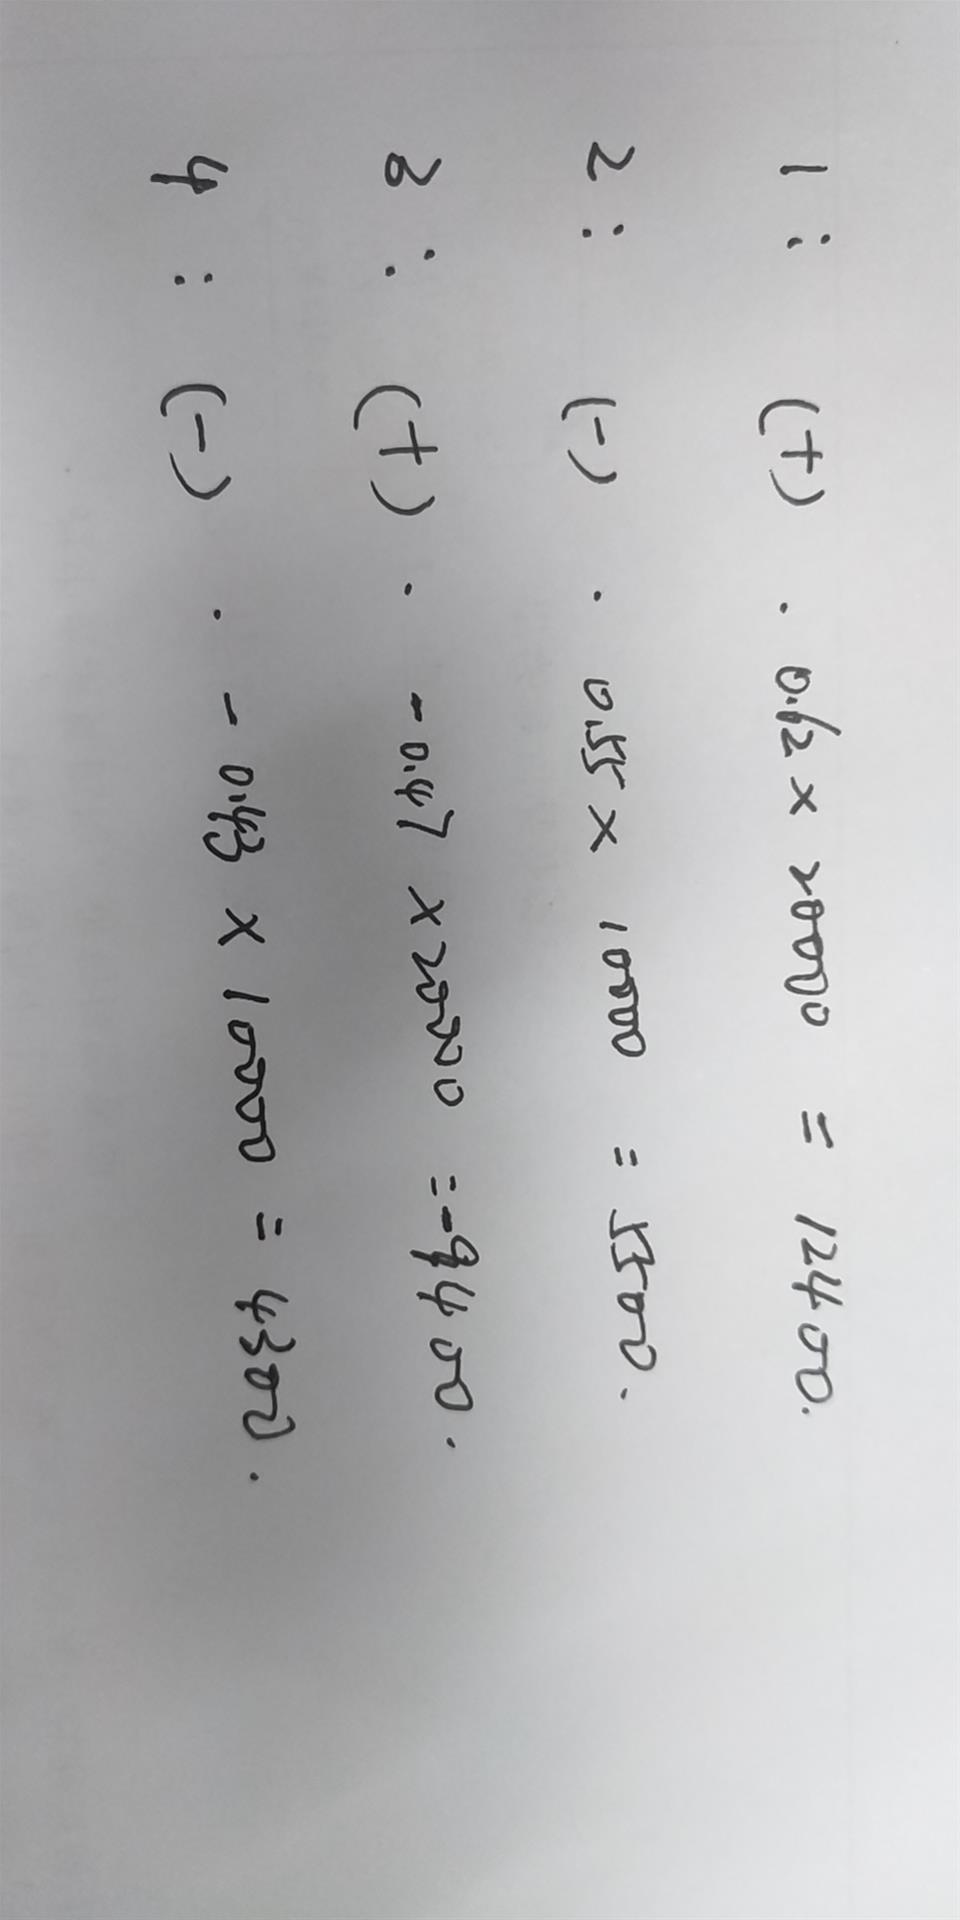 1 : (+) . 0.62 × 20000 = 12400.
2 : (-) . 0.55 × 10000 = 5500.
3 : (+) . -0.47 × 20000 = -9400.
4 : (-) . -0.43 × 10000 = 4300.